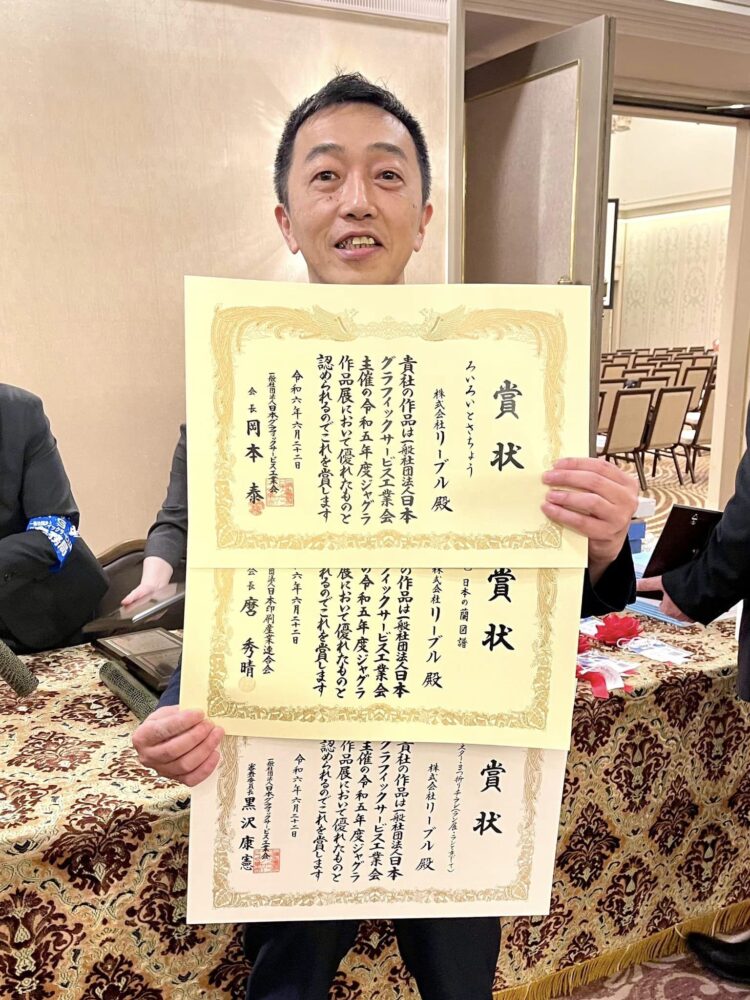 賞状
ろいろいとさちょう
株式会社リーブル 殿
貴社の作品は一般社団法人日本
グラフィックサービス工業会
主催の令和五年度ジャグラ
作品展において優れたものと
認められるのでこれを賞します
令和六年六月二十二日
一般社団法人日本グラフィックサービス工業会
会長 岡本 泰
賞状
日本の蘭図譜
株式会社リーブル 殿
の作品は一般社団法人日本
フィックサービス工業会
の令和五年度ジャグラ
展において優れたものと
られるのでこれを賞します
六年六月二十二日
団法人日本印刷産業連合会
会長 麿 秀晴
賞状
株式会社リーブル 殿
貴社の作品は一般社団法人日本
グラフィックサービス工業会
主催の令和五年度ジャグラ
作品展において優れたものと
認められるのでこれを賞します
令和六年六月二十二日
一般社団法人日本グラフィックサービス工業会
審査委員長 黒沢 康憲